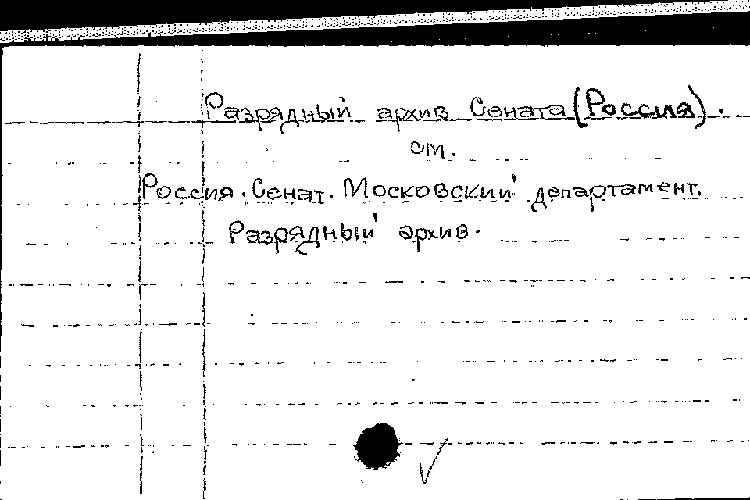 Разрядный архив Сената (Россия).
см.
Россия. Сенат. Московский департамент.
Разрядный архив.